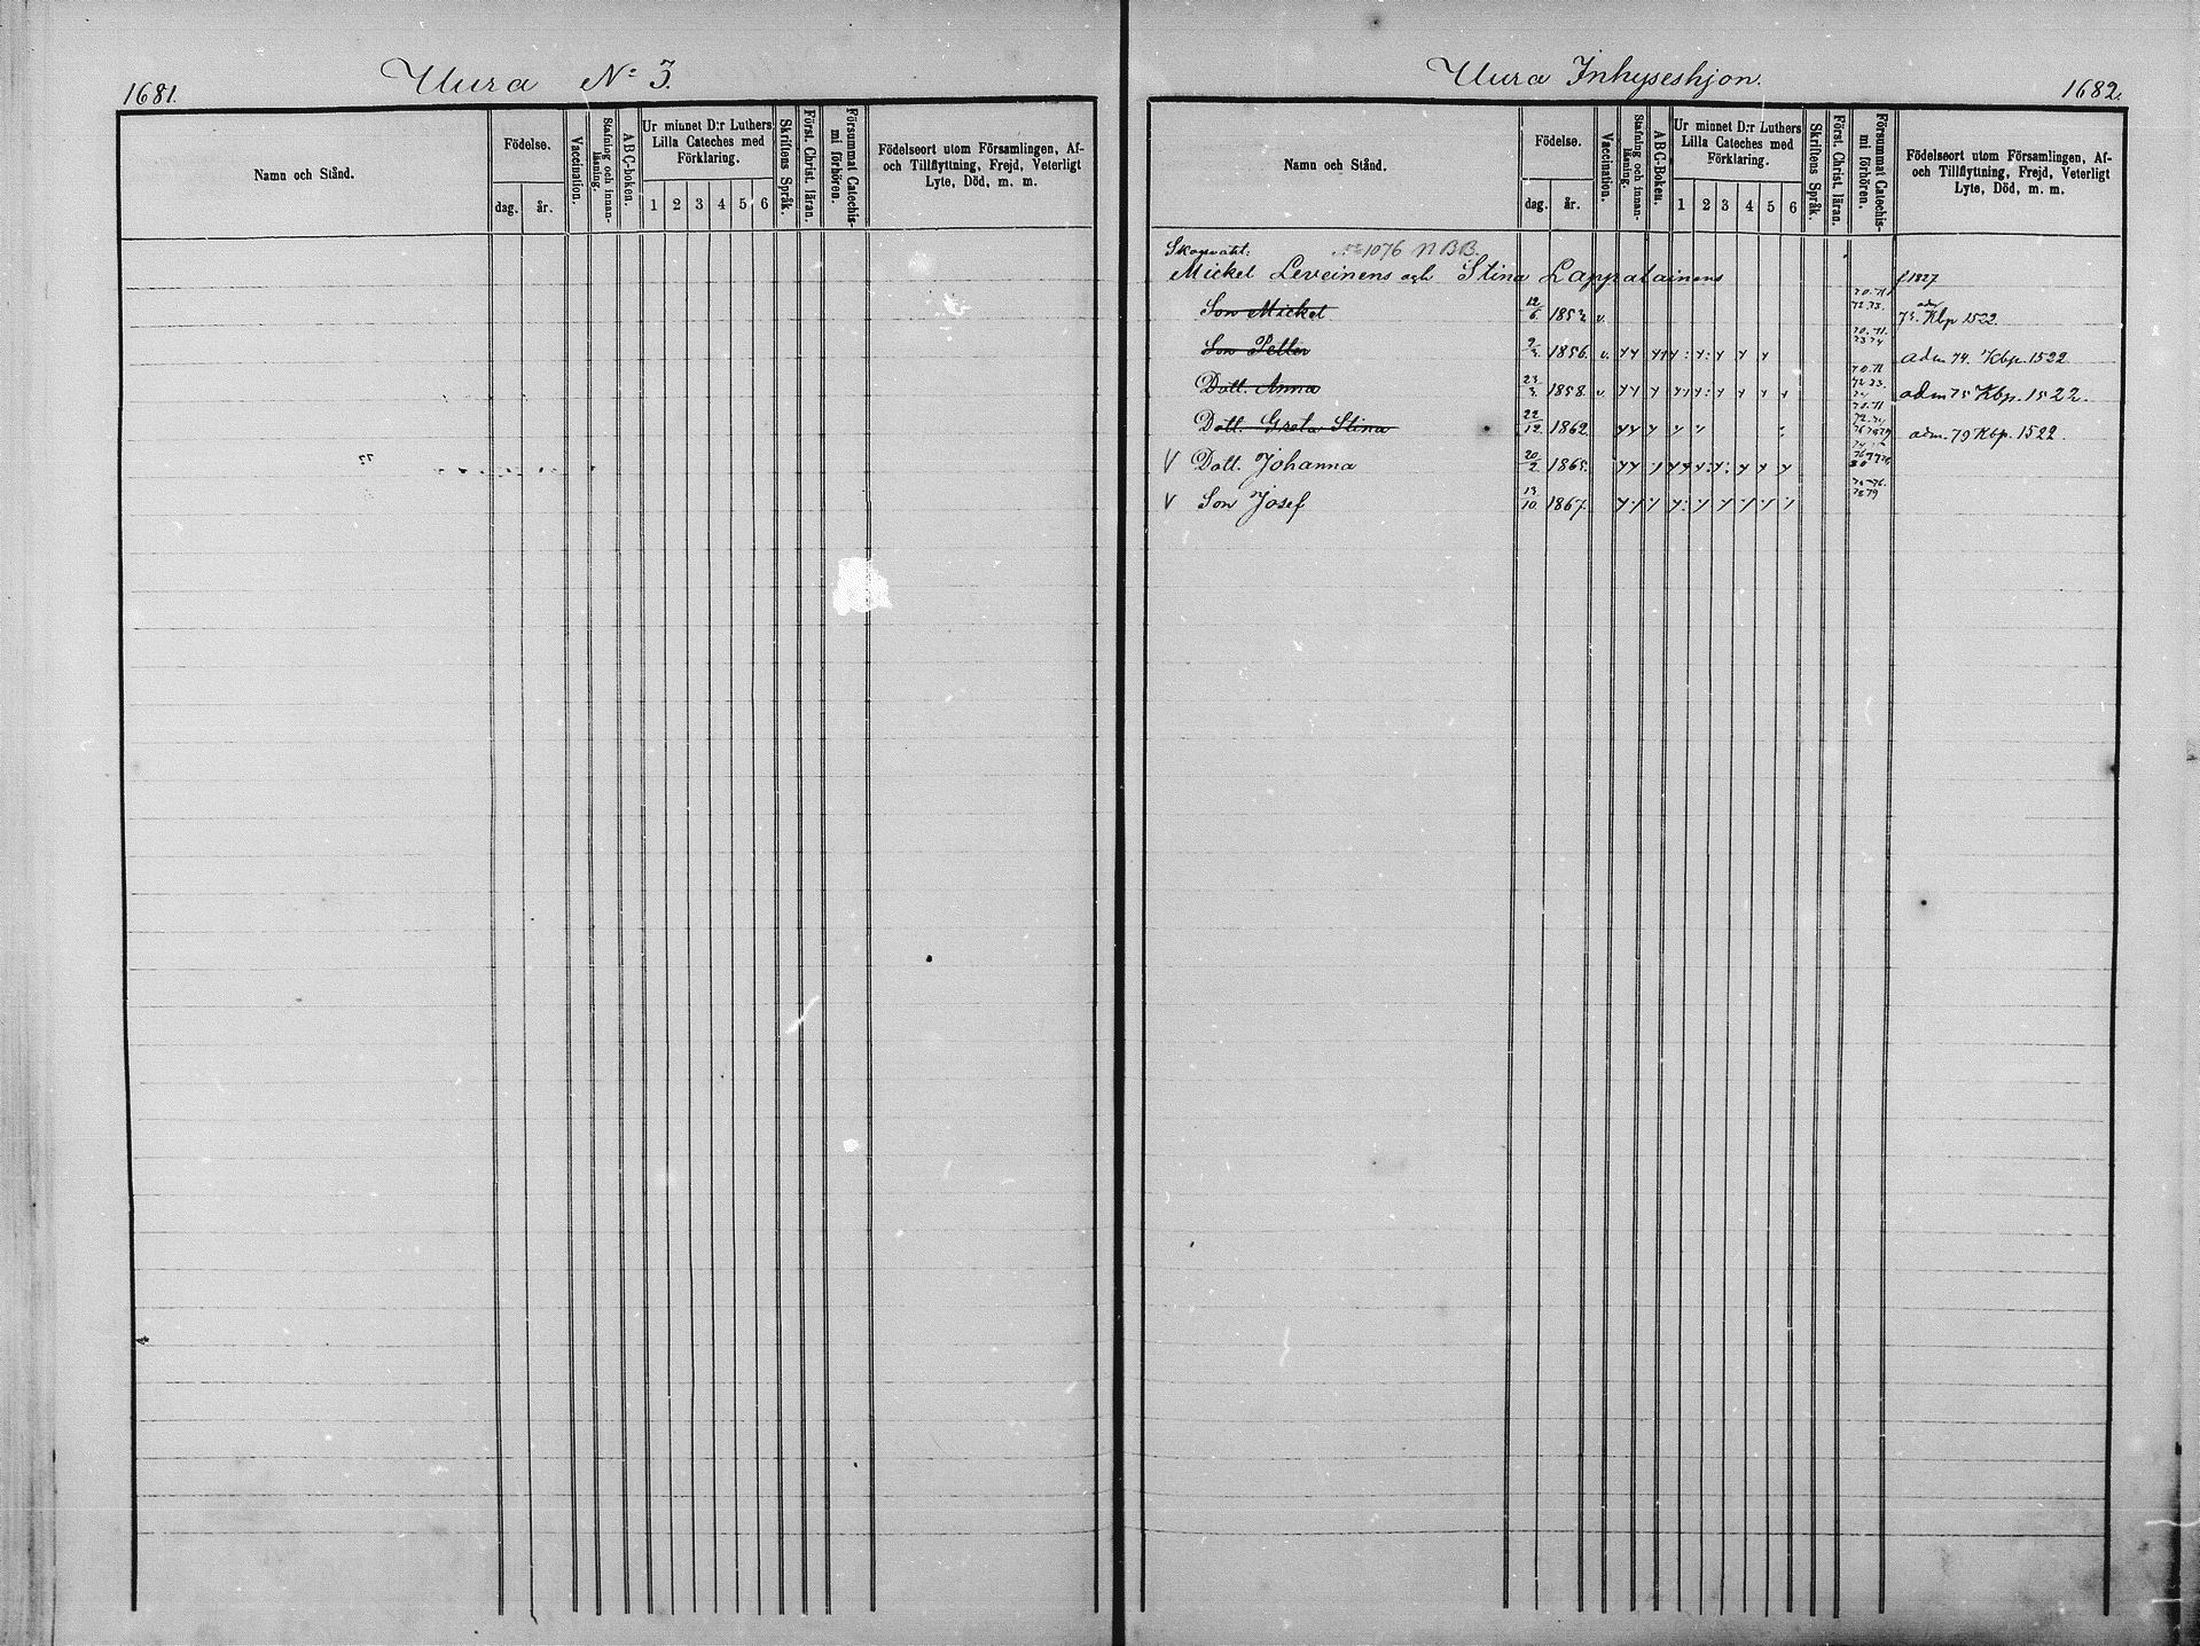 1681.
Uura No 3.
Namn och Stånd.
Födelse.
dag.
år.
Vaccination.
Stafning och innan-
läsning.
A B C-boken.
Ur minnet D:r Luthers
Lilla Cateches med
Förklaring.
1 2 3 4 5 6
Skriftens Språk.
Först. Christ. läran.
Försummat Catechis-
mi förhören.
Födelseort utom Församlingen, Af-
och Tillflyttning, Frejd, Veterligt
Lyte, Död, m. m.
Uura Inhyseshjon.
1682.
Namn och Stånd.
Födelse.
dag.
år.
Vaccination.
Stafning och innan-
läsning.
A B C-Boken.
Ur minnet D:r Luthers
Lilla Cateches med
Förklaring.
1 2 3 4 5 6
Skriftens Språk.
Först. Christ. läran.
Försummat Catechis-
mi förhören.
Födelseort utom Församlingen, Af-
och Tillflyttning, Frejd, Veterligt
Lyte, Död, m. m.
Skogsvakt: 1076 N B B.
Mickel Leveinens och Stina Lappalainens f 1827
Son Mickel 12/6 1853 v. 70.71 72.73. adm 73. Kbp 1522.
Son Petter 9/3 1856. v. 70.71. 73 74 adm 74. Kbp. 1522
Dott. Anna 23/3 1858. v. 70.71 72 73. adm 75 Kbp. 1522.
Dott. Greta Stina 22/12 1862. adm. 79 Kbp. 1522.
V Dott. Johanna 20/2 1865.
V Son Josef 13/10 1867. 78 79